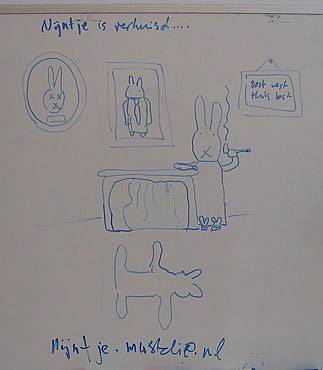 Nijntje is verhuisd....
Oost west
thuis best
Nijntje.mustdie.nl